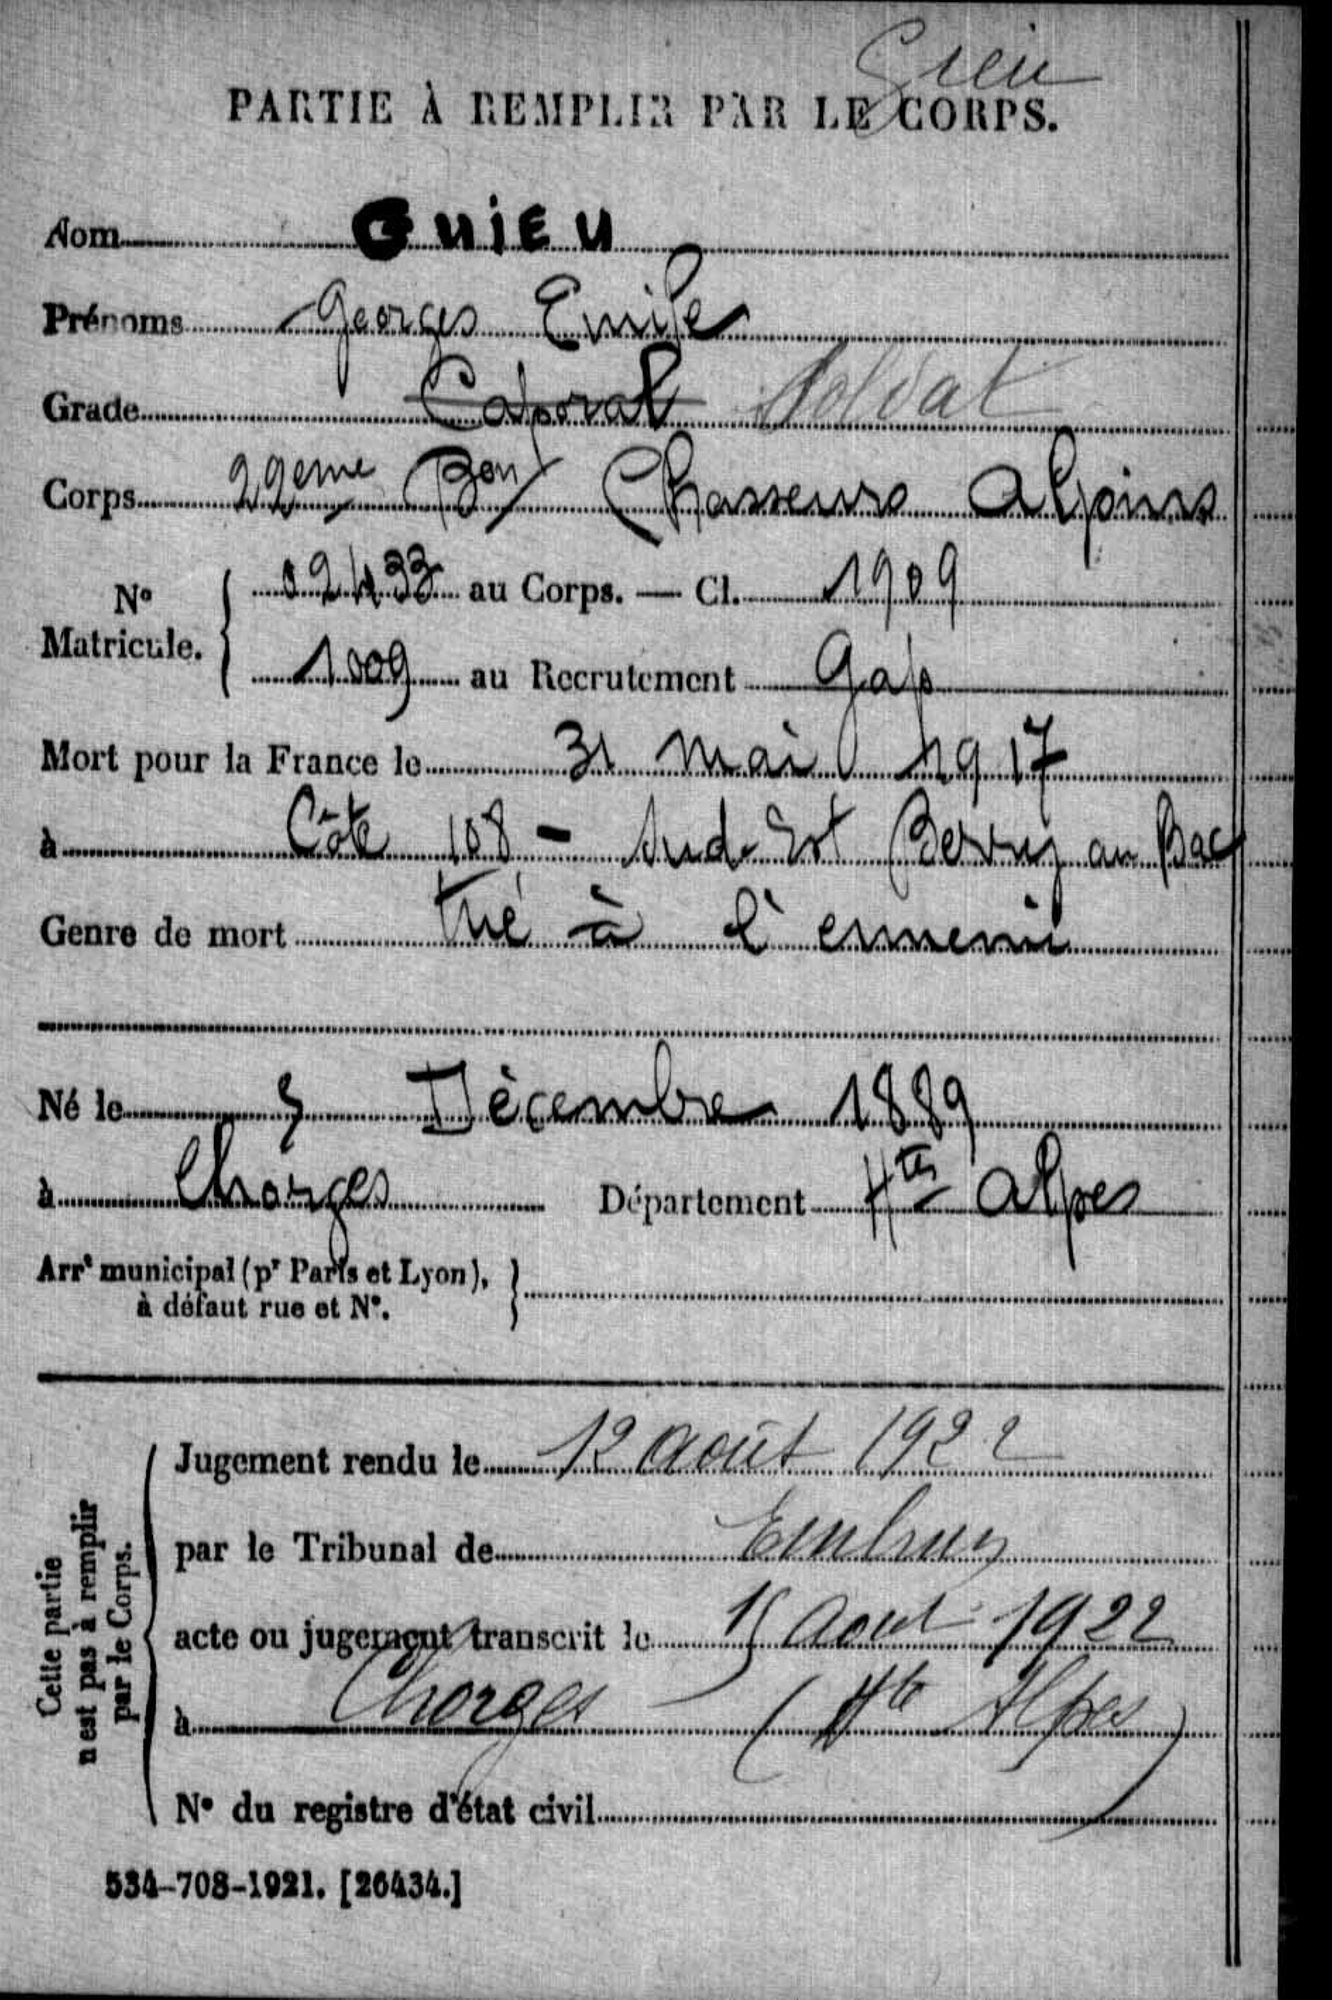 Gieu
PARTIE À REMPLIR PAR LE CORPS.
Nom GUIEU
Prénoms Georges Emile
Grade Caporal Soldat
Corps 22eme Bon Chasseurs Alpins
No Matricule. 02433 au Corps. — Cl. 1909
1009 au Recrutement Gap
Mort pour la France le 31 Mai 1917
à Côte 108 - Sud-Est Berry au Bac
Genre de mort Tué à l'ennemi
Né le 5 Décembre 1889
à Chorges Département Htes Alpes
Arrt municipal (pr Paris et Lyon),
à défaut rue et N°.
Cette partie n'est pas à remplir par le Corps.
Jugement rendu le 12 Août 1922
par le Tribunal de Embrun
acte ou jugement transcrit le 15 Aout 1922
à Chorges (Hte Alpes)
N° du registre d'état civil
534-708-1921. [26434.]